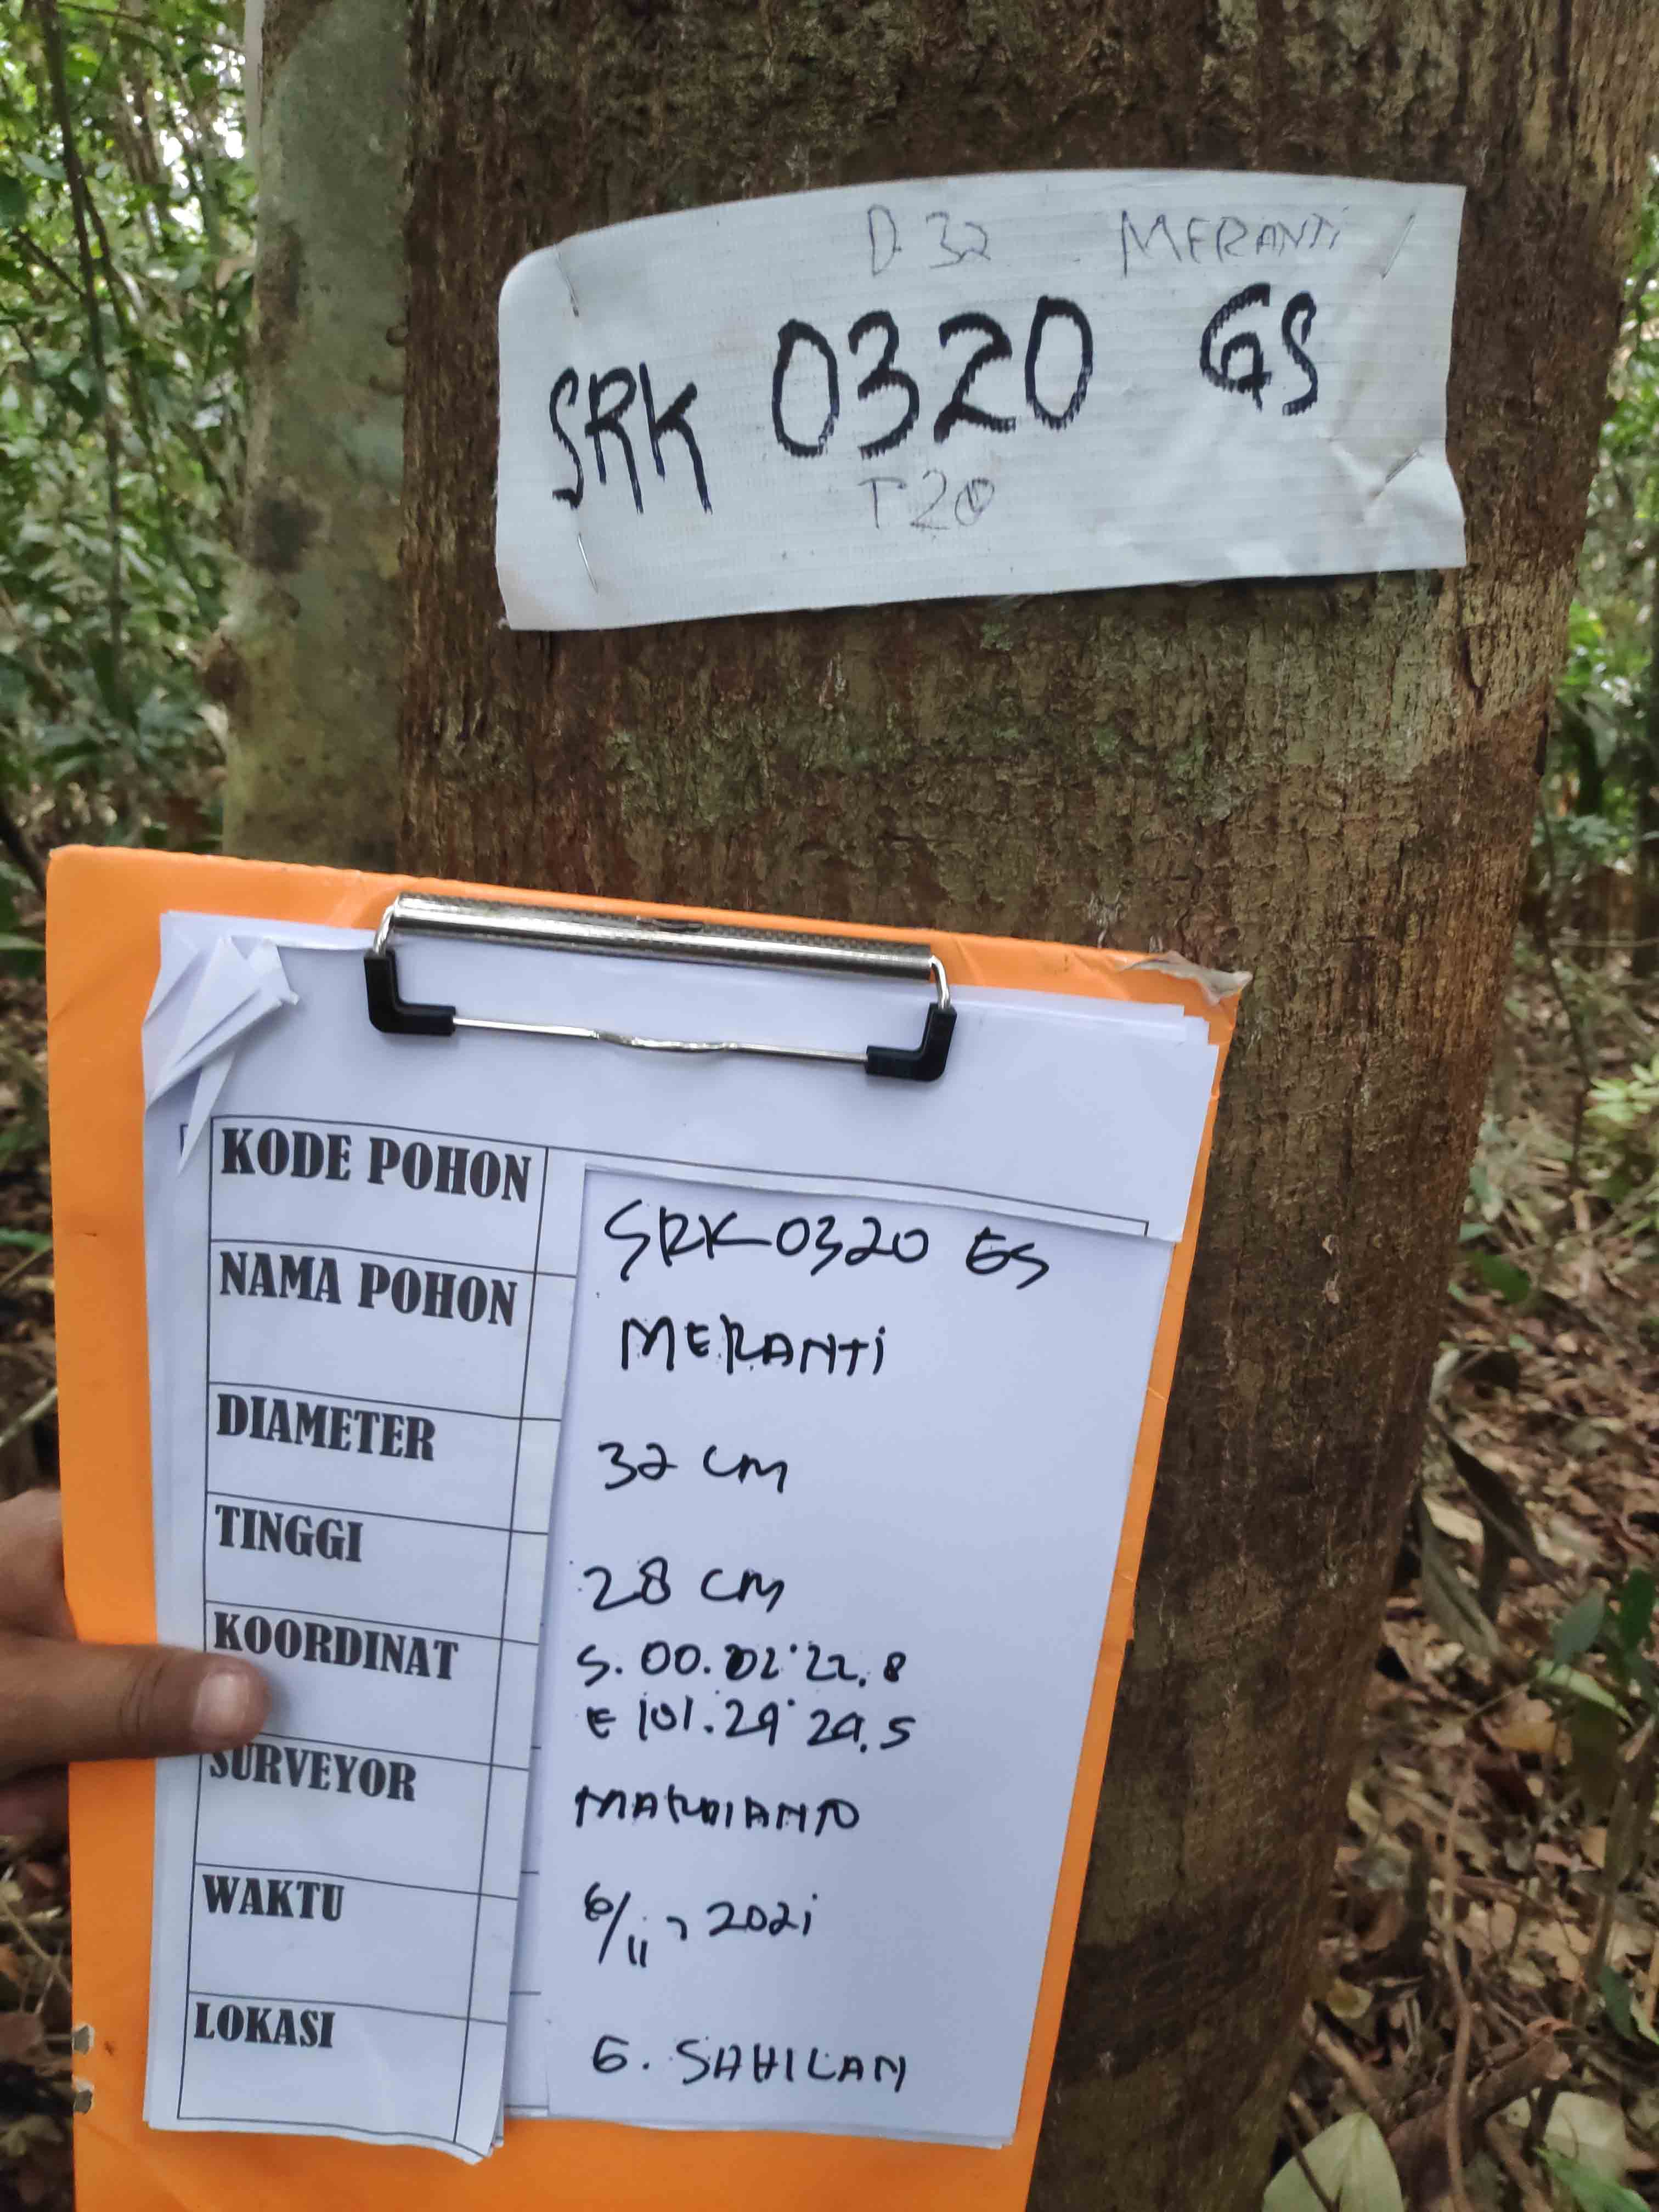 D 32 MERANTi
SRK 0320 GS
T 20
KODE POHON SRK 0320 GS
NAMA POHON MERANTi
DIAMETER 32 CM
TINGGI 28 CM
KOORDINAT S. 00. 02' 22. 8
E 101. 29' 29. 5
SURVEYOR MARDIANTO
WAKTU 6/11, 2021
LOKASI G. SAHILAN